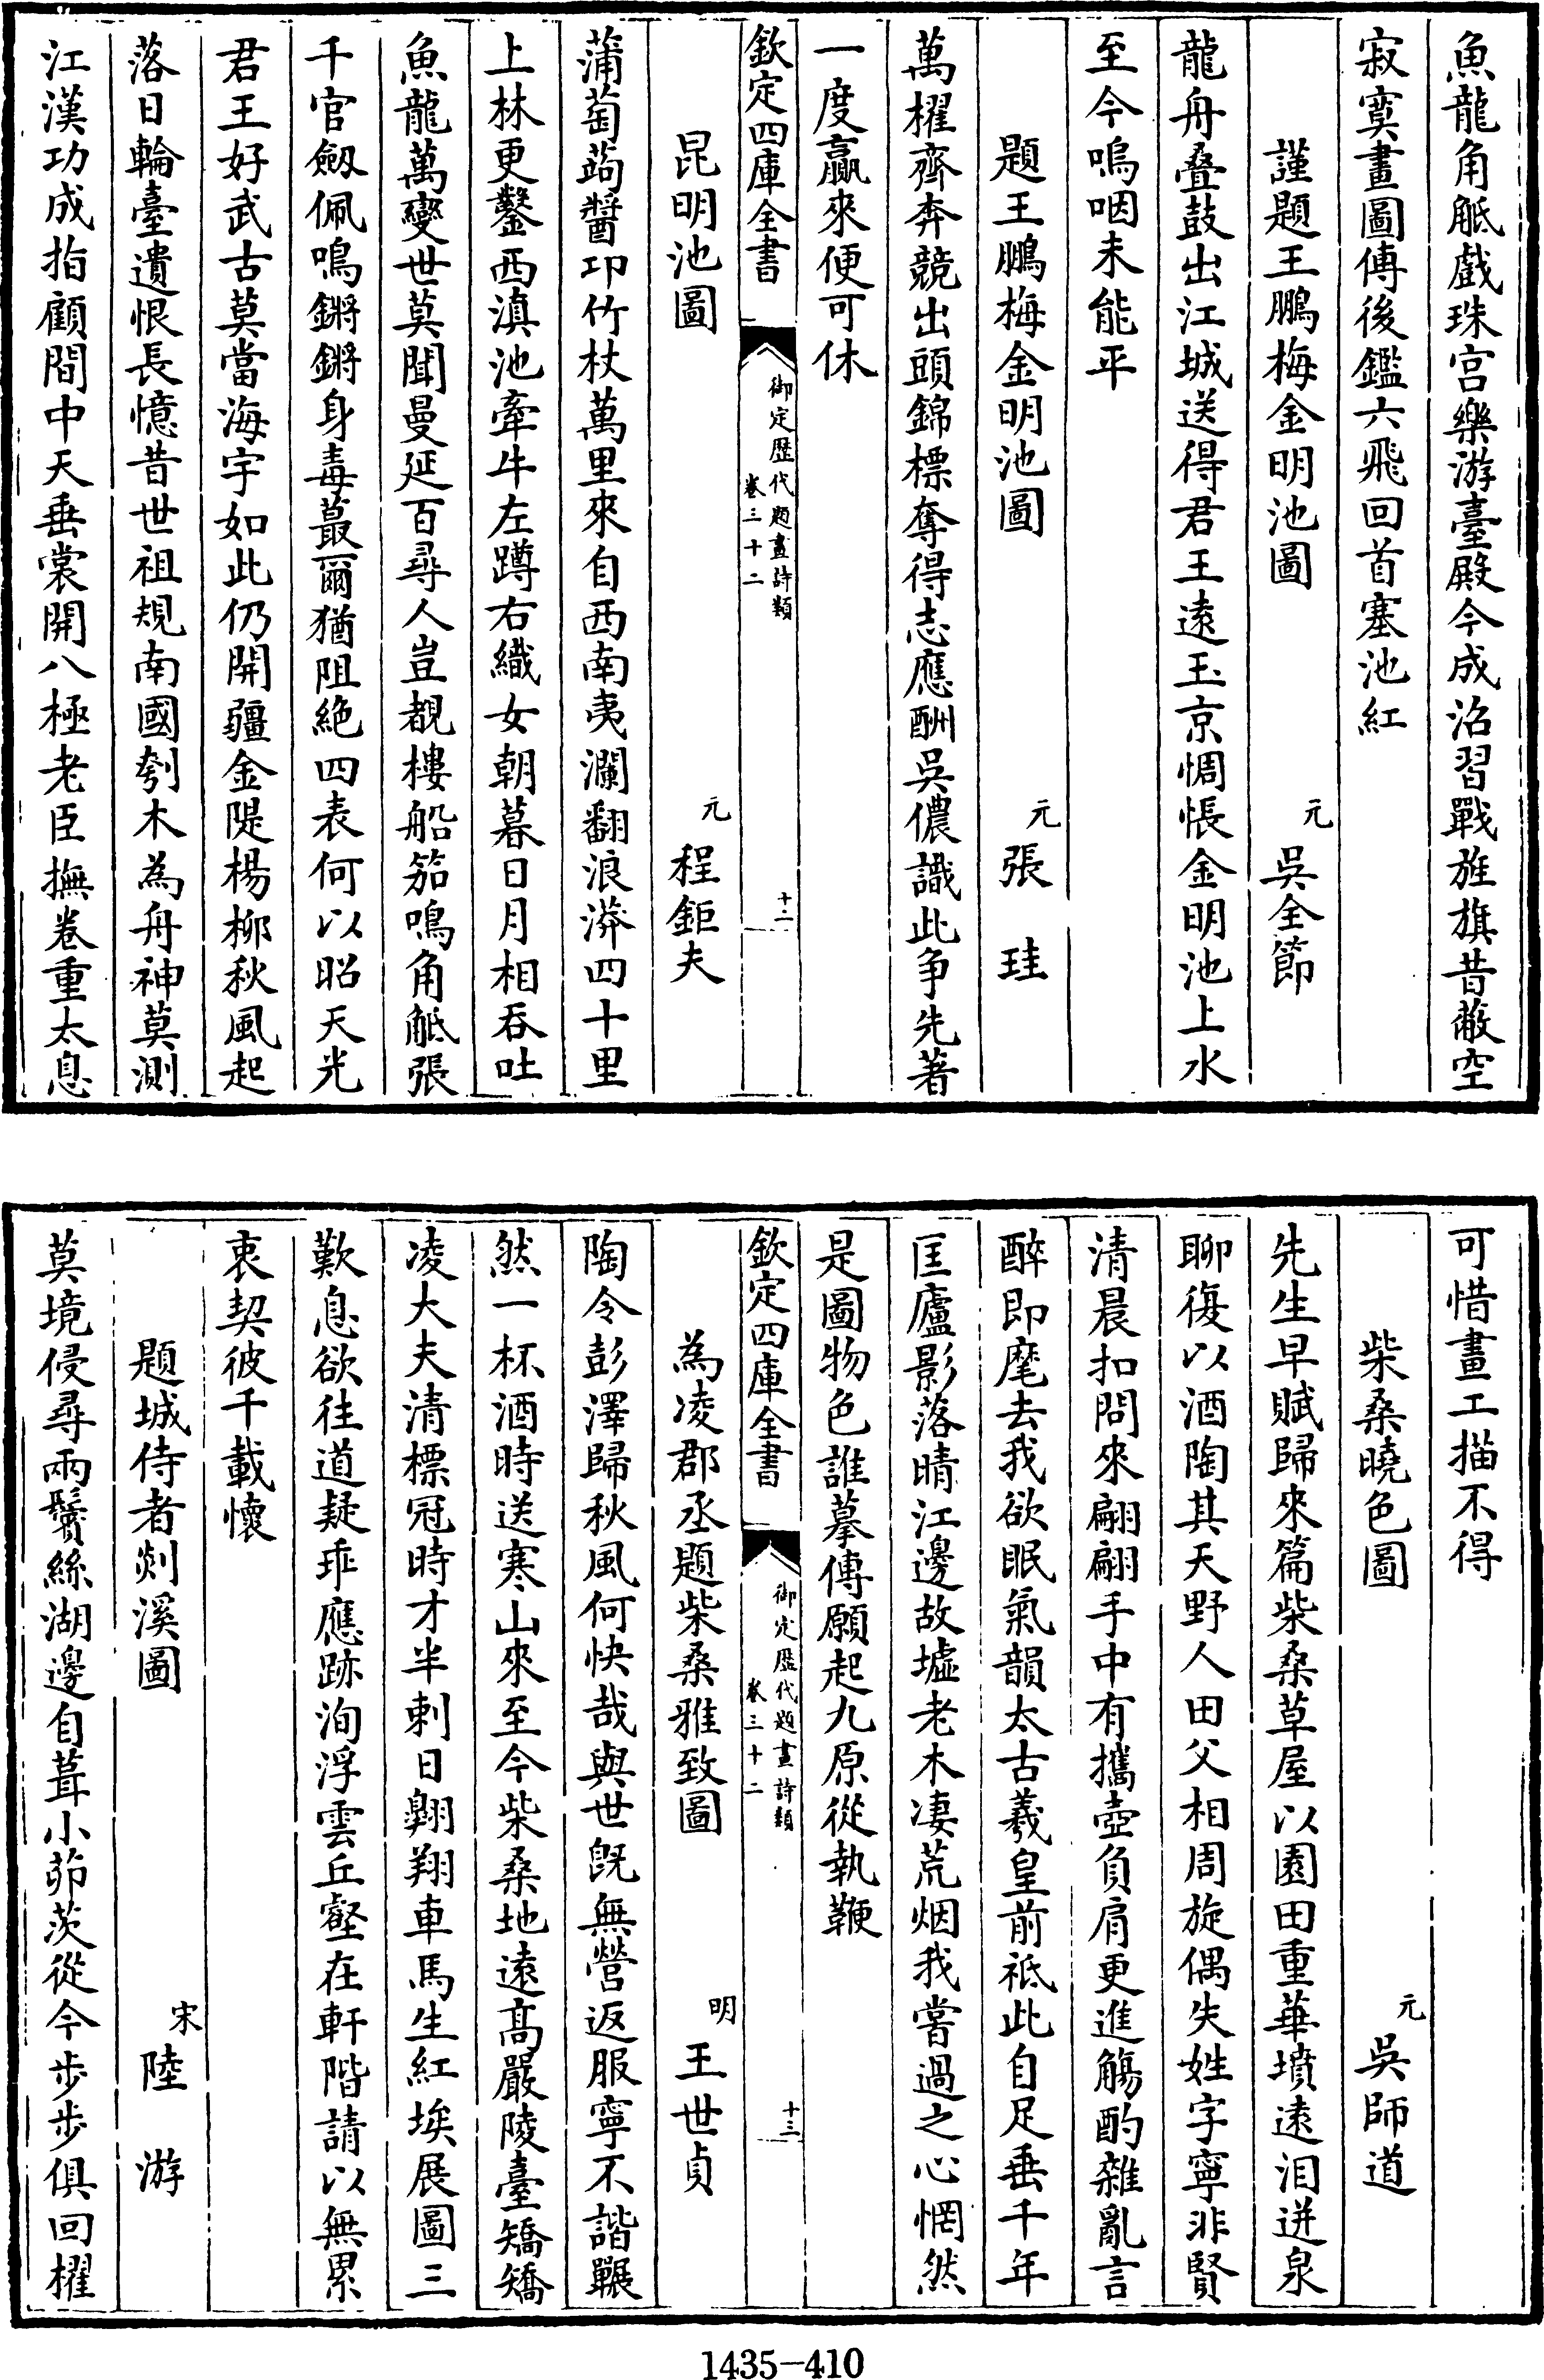 魚龍角觝戲珠宫樂游臺殿今成沼習戰旌旗昔蔽空
寂寞畫圖傳後鑑六飛回首塞池紅
謹題王鵬梅金明池圖 元 吳全節
龍舟叠鼓出江城送得君王遠玉京惆悵金明池上水
至今嗚咽未能平
題王鵬梅金明池圖 元 張珪
萬櫂齊奔競出頭錦標奪得志應酬吳儂識此爭先著
一度贏來便可休
欽定四庫全書 御定歷代題畫詩類 卷三十二 十二
昆明池圖 元 程鉅夫
蒲萄蒟醬邛竹杖萬里來自西南夷瀾翻浪漭四十里
上林更鑿西滇池牽牛左蹲右織女朝暮日月相吞吐
魚龍萬變世莫聞曼延百尋人豈覩樓船笳鳴角觝張
千官劔佩鳴鏘鏘身毒蕞爾猶阻絶四表何以昭天光
君王好武古莫當海宇如此仍開疆金隄楊柳秋風起
落日輪臺遺恨長憶昔世祖規南國刳木為舟神莫測
江漢功成指顧間中天垂裳開八極老臣撫卷重太息
可惜畫工描不得
柴桑曉色圖 元 吳師道
先生早賦歸來篇柴桑草屋以園田重華墳遠泪迸泉
聊復以酒陶其天野人田父相周旋偶失姓字寧非賢
清晨扣問來翩翩手中有攜壺負肩更進觴酌雜亂言
醉即麾去我欲眠氣韻太古羲皇前祇此自足垂千年
匡廬影落晴江邊故墟老木凄荒烟我嘗過之心惘然
是圖物色誰摹傳願起九原從執鞭
欽定四庫全書 御定歷代題畫詩類 卷三十二 十三
為凌郡丞題柴桑雅致圖 明 王世貞
陶令彭澤歸秋風何快哉與世既無營返服寧不諧囅
然一杯酒時送寒山來至今柴桑地遠髙嚴陵臺矯矯
凌大夫清標冠時才半刺日翺翔車馬生紅埃展圖三
歎息欲往道疑乖應跡洵浮雲丘壑在軒階請以無累
衷契彼千載懷
題城侍者剡溪圖 宋 陸游
莫境侵尋兩鬢絲湖邊自葺小茆茨從今步步俱回櫂
1435-410